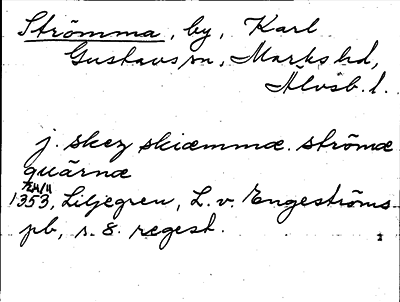 Strömma, by, Karl
Gustavs sn, Marks hd,
Älvsb. l.
j. skez skiæmmæ. strömæ
quærnæ
24/11
1353, Liljegren, L. v. Engeströms
pb, s. 8. regest.